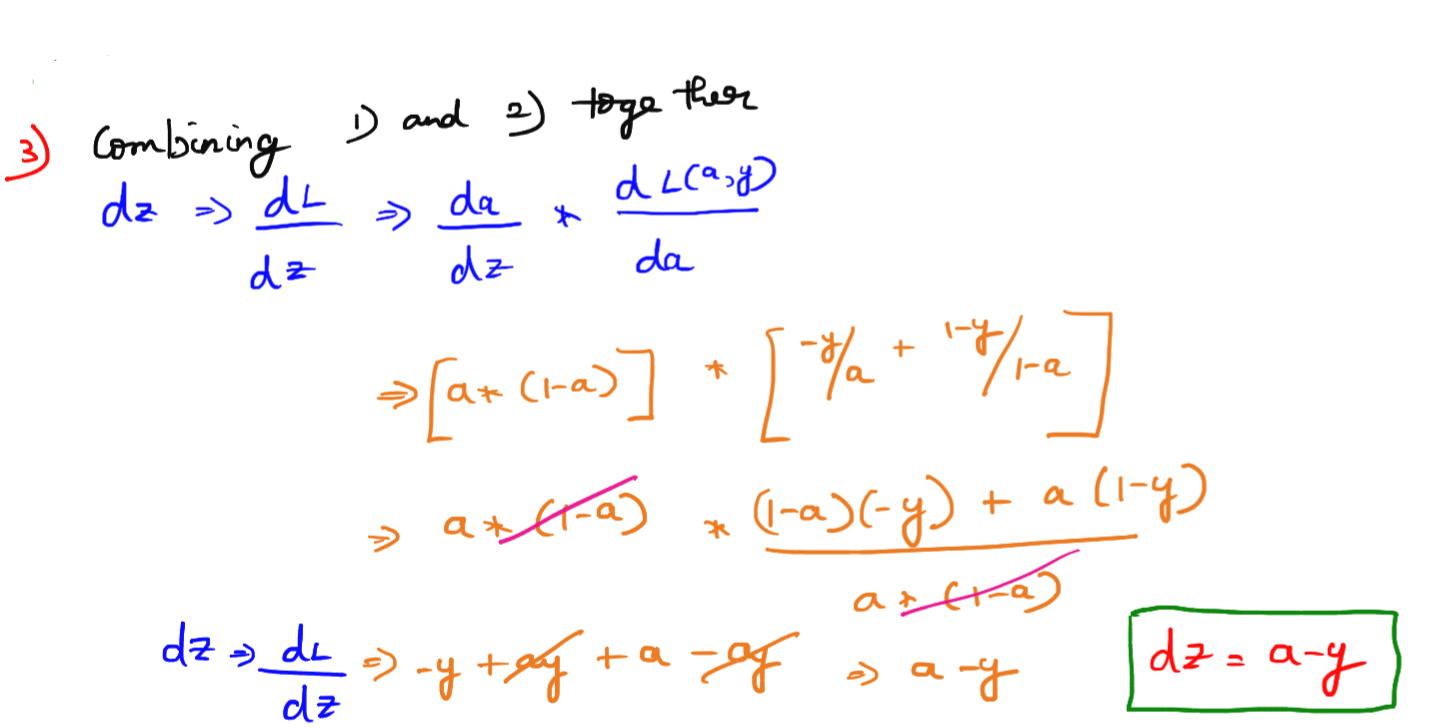 3) Combining 1) and 2) together
dz ⇒ dL/dz ⇒ da/dz * dL(a,y)/da
⇒ [a * (1-a)] * [-y/a + 1-y/1-a]
⇒ a * (1-a) * (1-a)(-y) + a(1-y) / a * (1-a)
dz ⇒ dL/dz ⇒ -y + ay + a - ay ⇒ a - y
dz = a-y